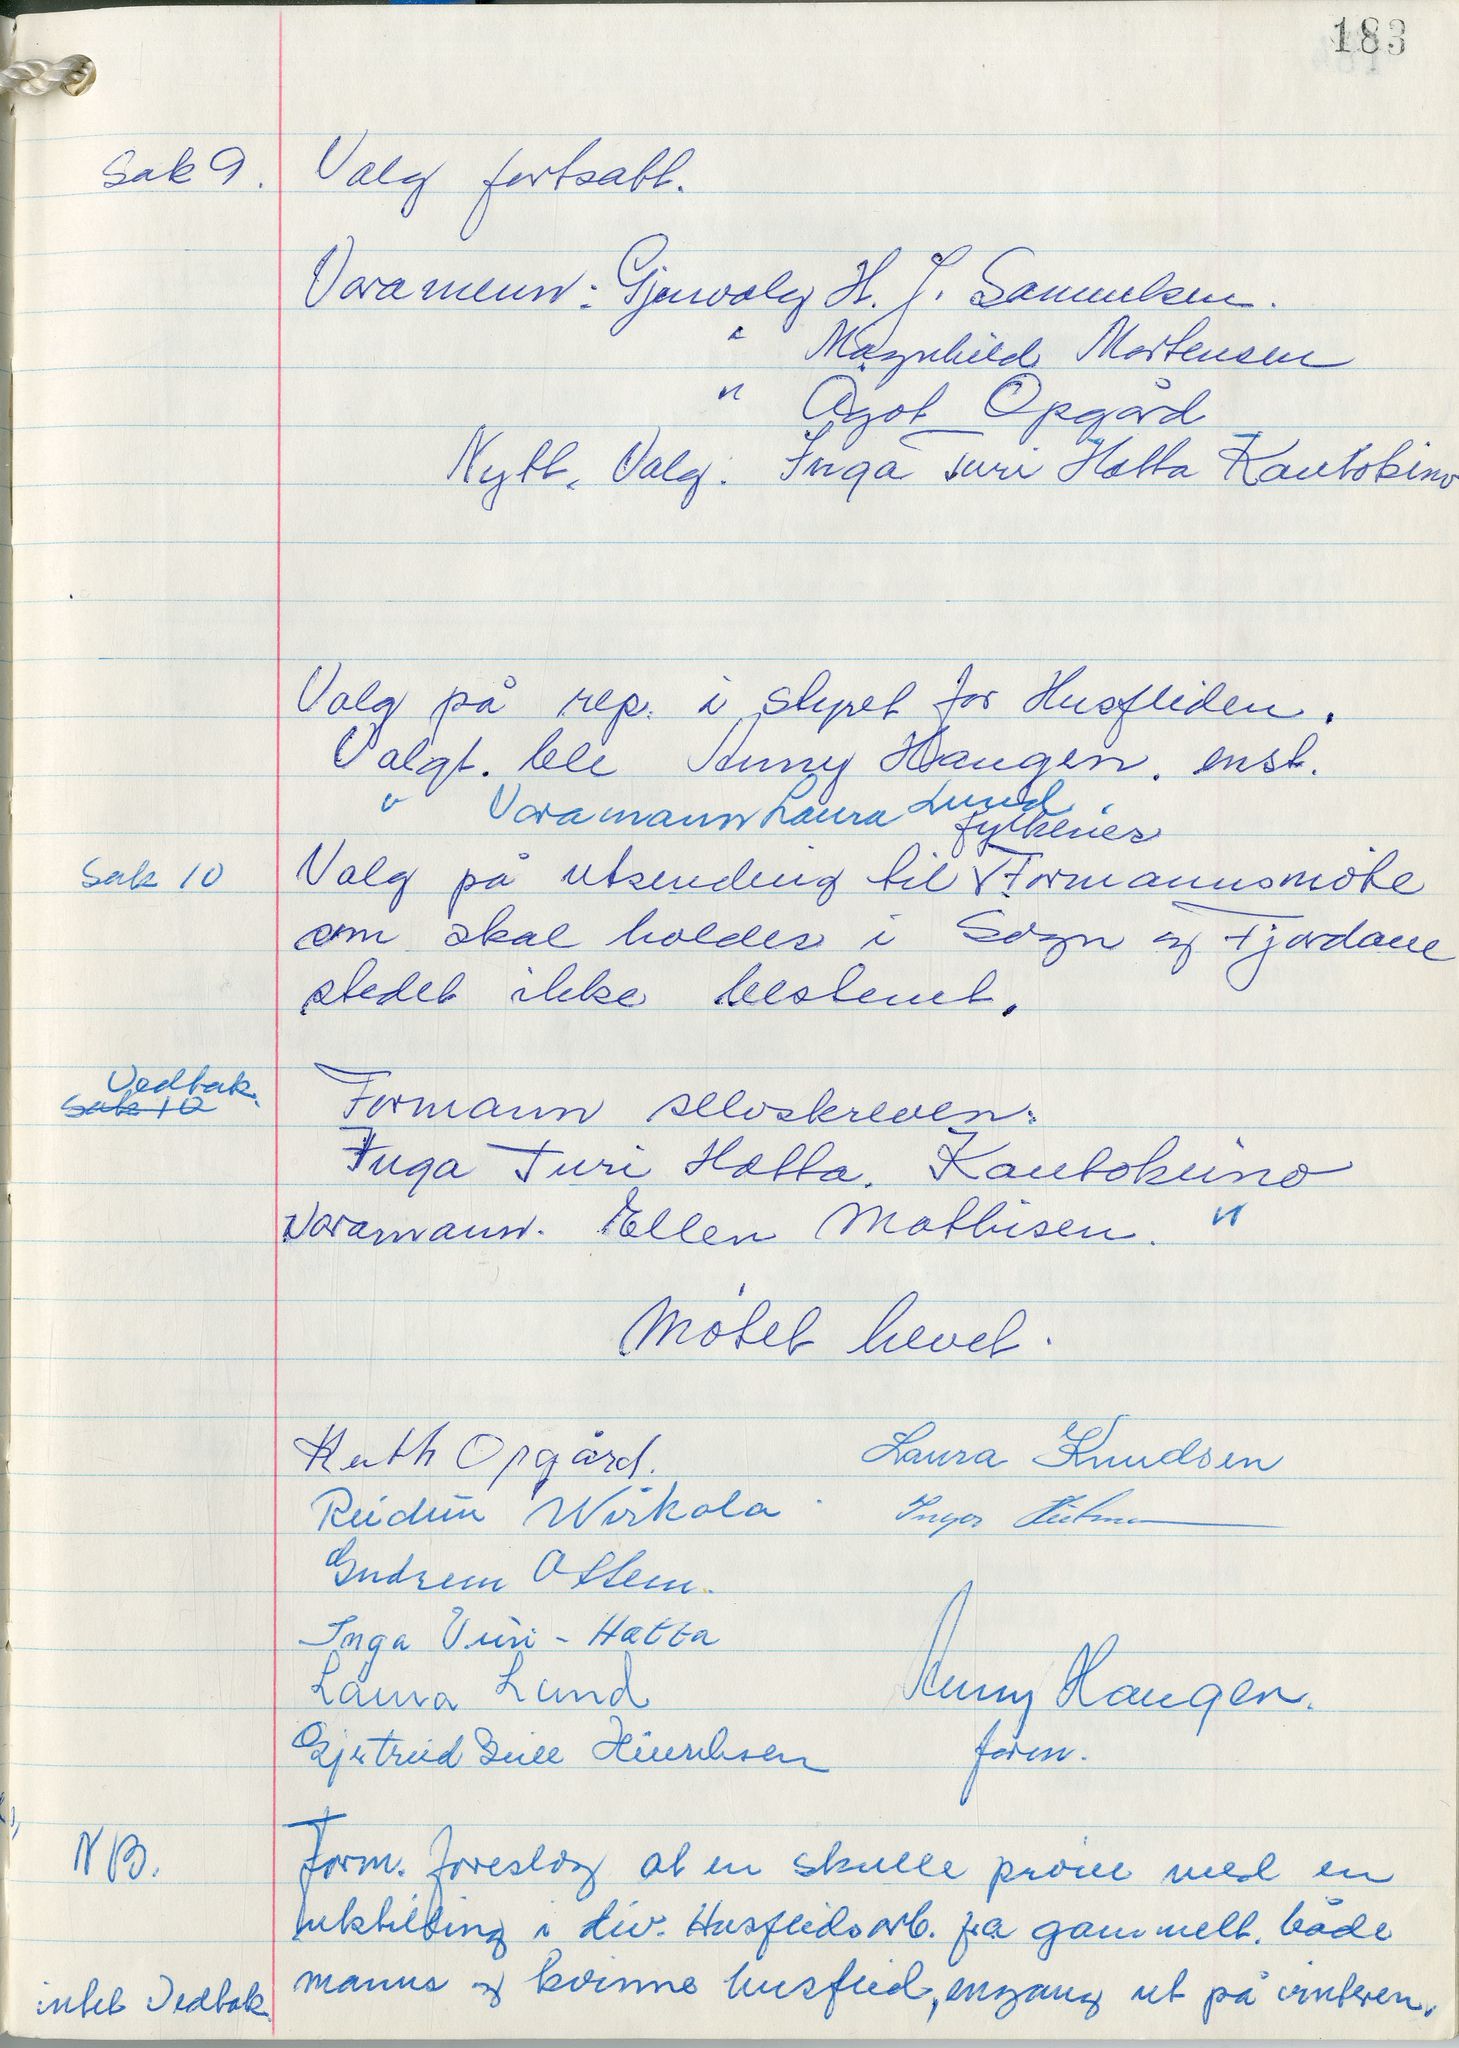 183
Sak 9. Valg fortsatt.
Varamenn: Gjenvalg H. J. Samuelsen.
" Magnhild Mortensen
" Agot Opgård
Nytt. Valg. Inga Turi Hætta Kautokino
Valg på rep. i styret for Husfliden.
Valgt. ble Anny Haugen. enst.
" Varamann Laura Lund.
fylkenes
Sak 10 Valg på utsending til V Formannsmöte
som skal holdes i Sogn og Fjordane
stedet ikke bestemt.
Vedtak.
Sak 10 Formann selvskreven.
Inga Turi Hætta. Kautokeino
Varamann. Ellen Mathisen. "
Mötet hevet.
Ruth Opgård. Laura Knudsen
Reidun Wirkola. Inger
Gudrun Ottem.
Inga Turi - Hætta
Laura Lund Anny Haugen.
Gjertrud Henriksen form.
NB. Form. foreslog at en skulle pröve med en
utstilling i div. Husflidsarb. fra gammelt. både
intet Vedtak. manns og kvinne husflid, engang ut på vinteren.